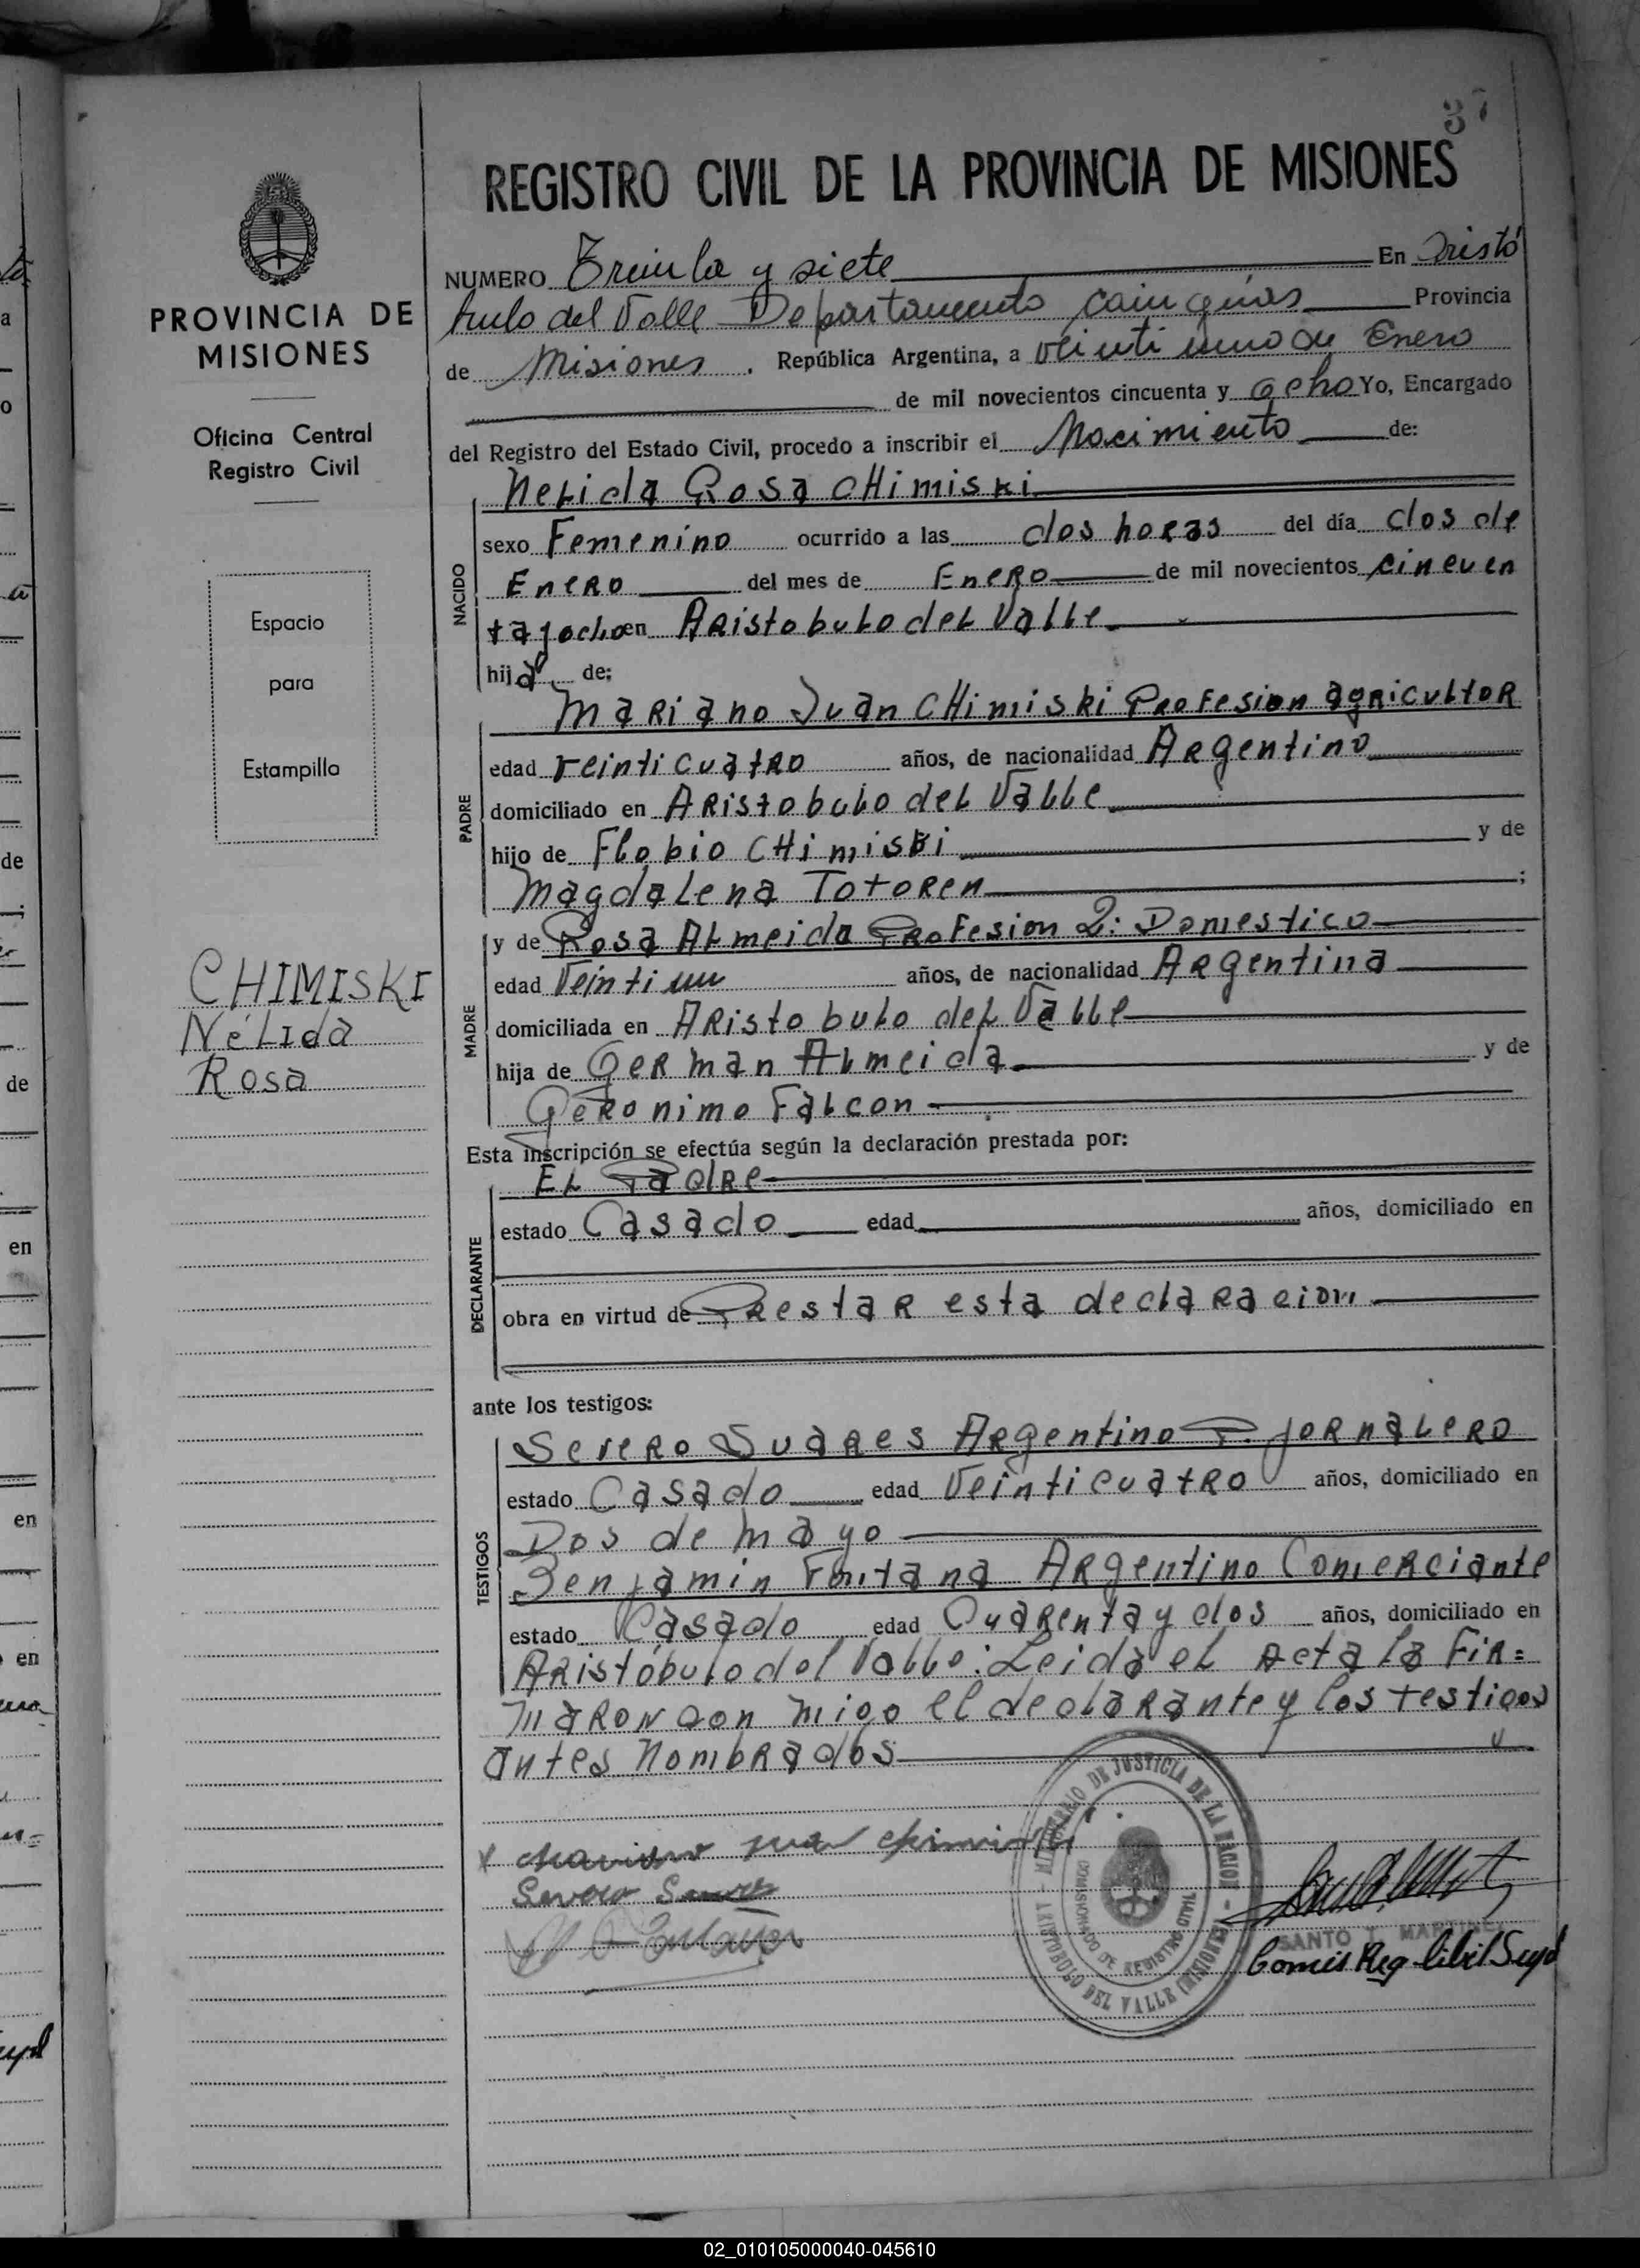 37
REGISTRO CIVIL DE LA PROVINCIA DE MISIONES
PROVINCIA DE
MISIONES
Oficina Central
Registro Civil
Espacio
para
Estampilla
CHIMISKI
Nélida
Rosa
NUMERO Treinta y siete En Aristó
bulo del Valle Departamento Cainguas Provincia
de Misiones . República Argentina, a veinti uno de Enero
de mil novecientos cincuenta y ocho Yo, Encargado
del Registro del Estado Civil, procedo a inscribir el Nacimiento de:
NACIDO
Nelida Rosa CHimiski
sexo Femenino ocurrido a las dos horas del día dos de
Enero del mes de Enero de mil novecientos cincuen
tayocho en Aristobulo del Valle
hija de:
PADRE
Mariano Juan CHimiski Profesion agricultor
edad veinticuatro años, de nacionalidad Argentino
domiciliado en Aristobulo del Valle
hijo de Flobio CHimiski y de
Magdalena Totoren ;
MADRE
y de Rosa Almeida Profesion Q: Domestico
edad Veintiun años, de nacionalidad Argentina
domiciliada en Aristobulo del Valle
hija de German Almeida y de
Geronimo Falcon
Esta inscripción se efectúa según la declaración prestada por:
DECLARANTE
El Padre
estado Casado edad años, domiciliado en
obra en virtud de Prestar esta declaracion
ante los testigos:
TESTIGOS
Severo Suares Argentino P. jornalero
estado Casado edad Veinticuatro años, domiciliado en
Dos de mayo
Benjamin Fontana Argentino Comerciante
estado Casado edad Cuarenta y dos años, domiciliado en
Aristóbulo del Valle: Leida el Acta la Fir=
maron con migo el declarante y los testigos
antes nombrados
Mariano Juan Chimiski
Severo Suares
MINISTERIO DE JUSTICIA DE LA NACION - ARISTOBULO DEL VALLE (MISIONES) -
COMISIONADO DE REGISTRO CIVIL
SANTO T. MARTINEZ
Comis Reg. Civil Supl
de
de
en
en
en
02_010105000040-045610